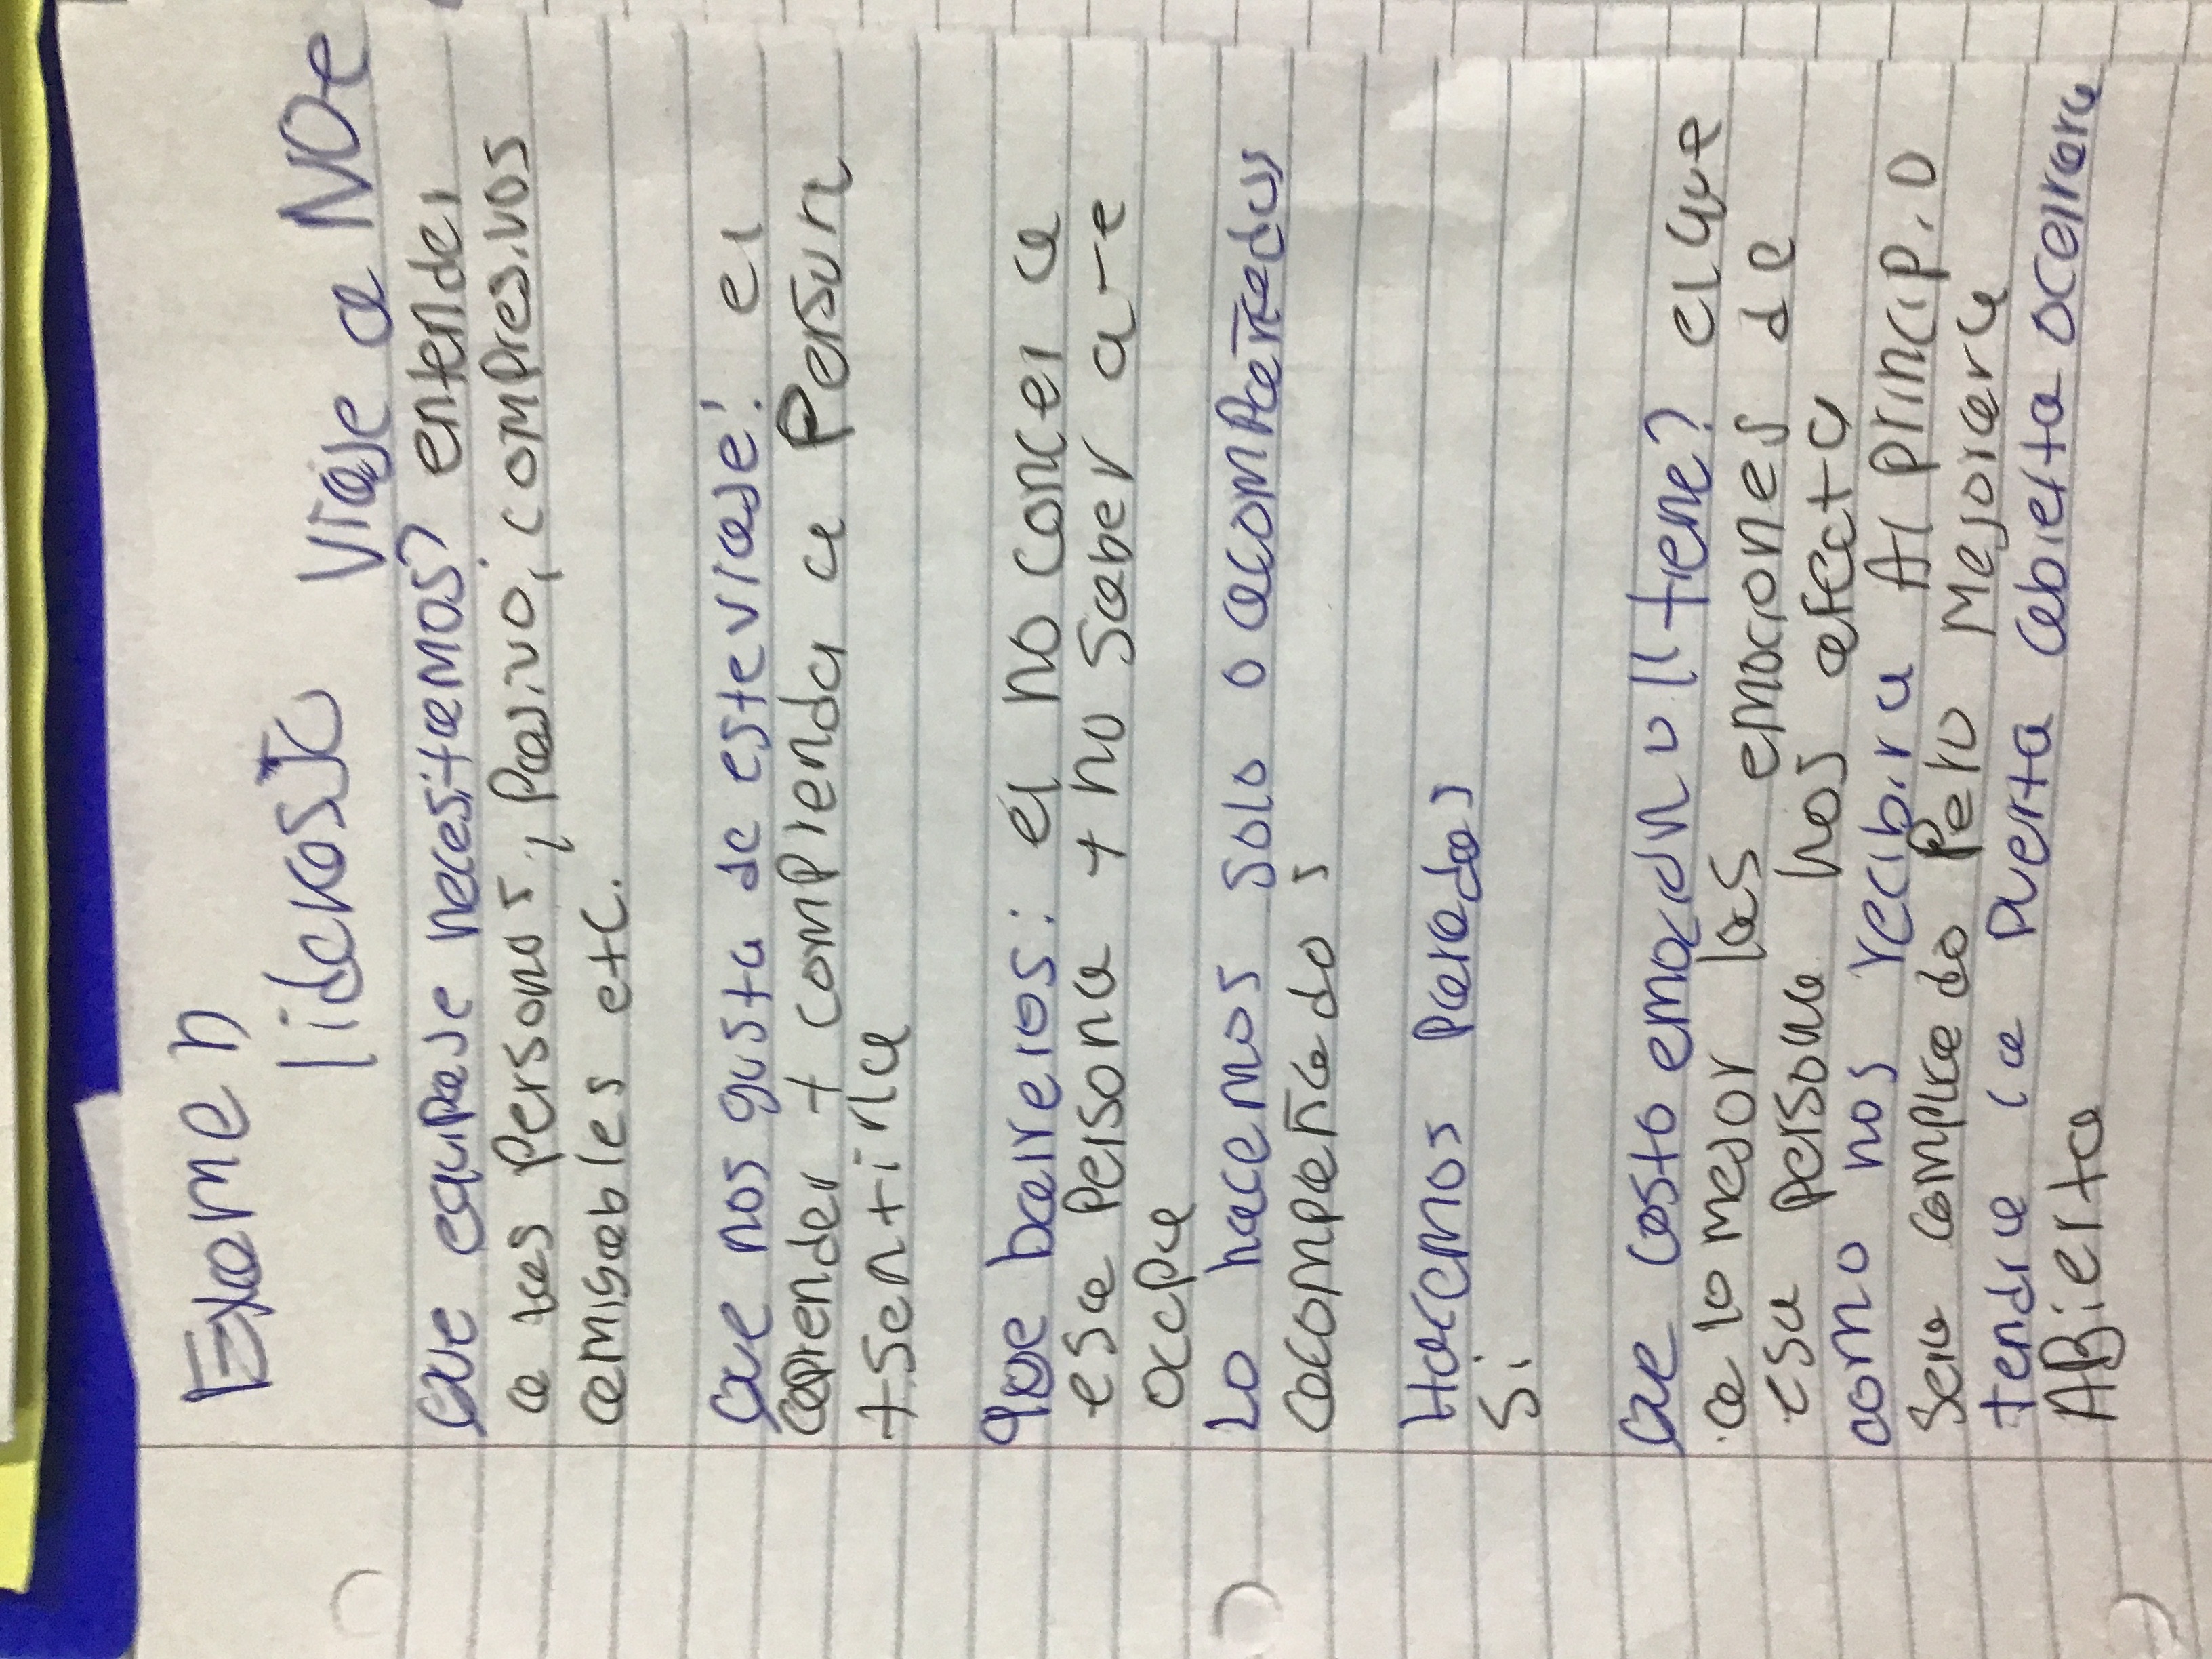 Examen
liderosJC viaje a NOe
Que equipaje necesitamos? entender
a las personas, Pasivo, compresivos
amigables etc.
Que nos gusta de este viaje: el
aprender + comprender a Person
+sentirla
que barreros: el no concer a
esa persona + no saber a-e
ocepa
Lo hacemos solo o acompañados
acompañados
Hacemos paradas
Si
Que costo emocinull tiene? elque
a lo mejor las emociones de
esa persona nos afecta
como nos recibira Al principio
sera complicado Pero Mejorara
tendra la puerta abierta ocerrara
ABierta